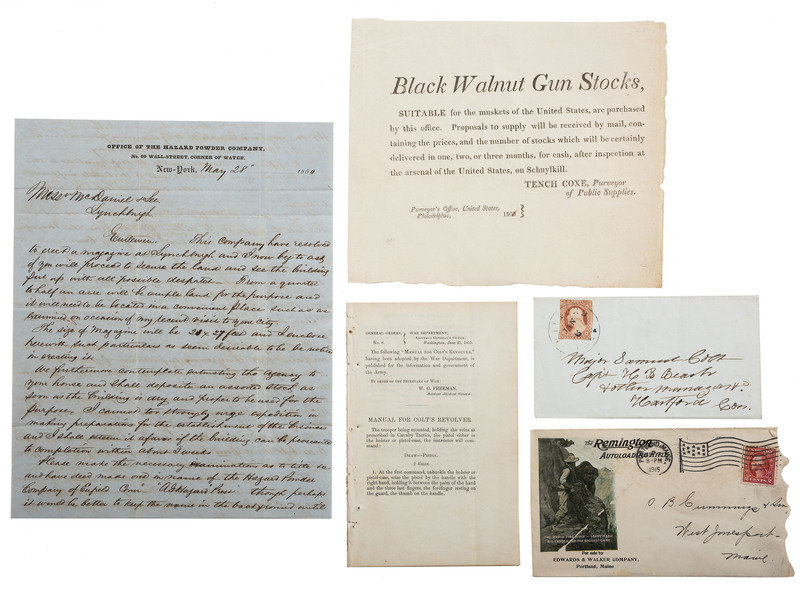 OFFICE OF THE HAZARD POWDER COMPANY,
No. 89 WALL-STREET, CORNER OF WATER.
New-York, May 28 1859
Messrs McDaniel & Lee
Lynchburgh
Gentlemen. This company have resolved
to erect a magazine at Lynchburgh and I now beg to ask
if you will proceed to secure the land and see the building
put up with all possible despatch - From a quarter
to half an acre will be ample land for the purpose and
it will need to be located in a convenient place such as
on occasion of my recent visit to your City.
The size of Magazine will be 20 x 27 feet and I enclose
herewith such particulars as seem desirable to be noticed
in erecting it.
We furthermore contemplate entrusting the agency to
your house and shall deposite an assorted stock as
soon as the building is dry and proper to be used for the
purpose. I cannot too strongly urge expedition in
making preparations for the establishment of the business
and I shall esteem it a favor if the building can be
to completion within about 3 weeks
Please make the necessary examinations as to title &c
and have deed made out in name of the Hazard Powder
Company of Enfield Conn. A G Hazard Prest though perhaps
it would be better to keep the name in the background until
Black Walnut Gun Stocks,
SUITABLE for the muskets of the United States, are purchased
by this office. Proposals to supply will be received by mail, con-
taining the prices, and the number of stocks which will be certainly
delivered in one, two, or three months, for cash, after inspection at
the arsenal of the United States, on Schuylkill.
TENCH COXE, Purveyor
of Public Supplies.
Purveyor's Office, United States,
Philadelphia,
GENERAL ORDERS, WAR DEPARTMENT,
No. 8. ADJUTANT GENERAL'S OFFICE,
Washington, June 21, 1855.
The following "MANUAL FOR COLT'S REVOLVER,"
having been adopted by the War Department, is
published for the information and government of
the Army.
BY ORDER OF THE SECRETARY OF WAR:
W. G. FREEMAN,
Assistant Adjutant General.
MANUAL FOR COLT'S REVOLVER.
The trooper being mounted, holding the reins as
prescribed in Cavalry Tactics, the pistol either in the
holster or pistol-case, the instructor will com-
mand:
DRAW—PISTOL.
2 times.
1. At the first command, unbuckle the holster or
pistol-case, seize the pistol by the handle with the
right hand, holding it between the palm of the hand
and the three last fingers, the forefinger resting on
the guard, the thumb on the handle.
Major Samuel Colt
Capt H B Beach
& other managers
Hartford
Con.
The Remington
AUTOLOADING RIFLE
8-PM
1915
2 CENTS 2
For sale by
EDWARDS & WALKER COMPANY,
Portland, Maine
O. B. Cummings & Son,
West Jonesport-
Maine